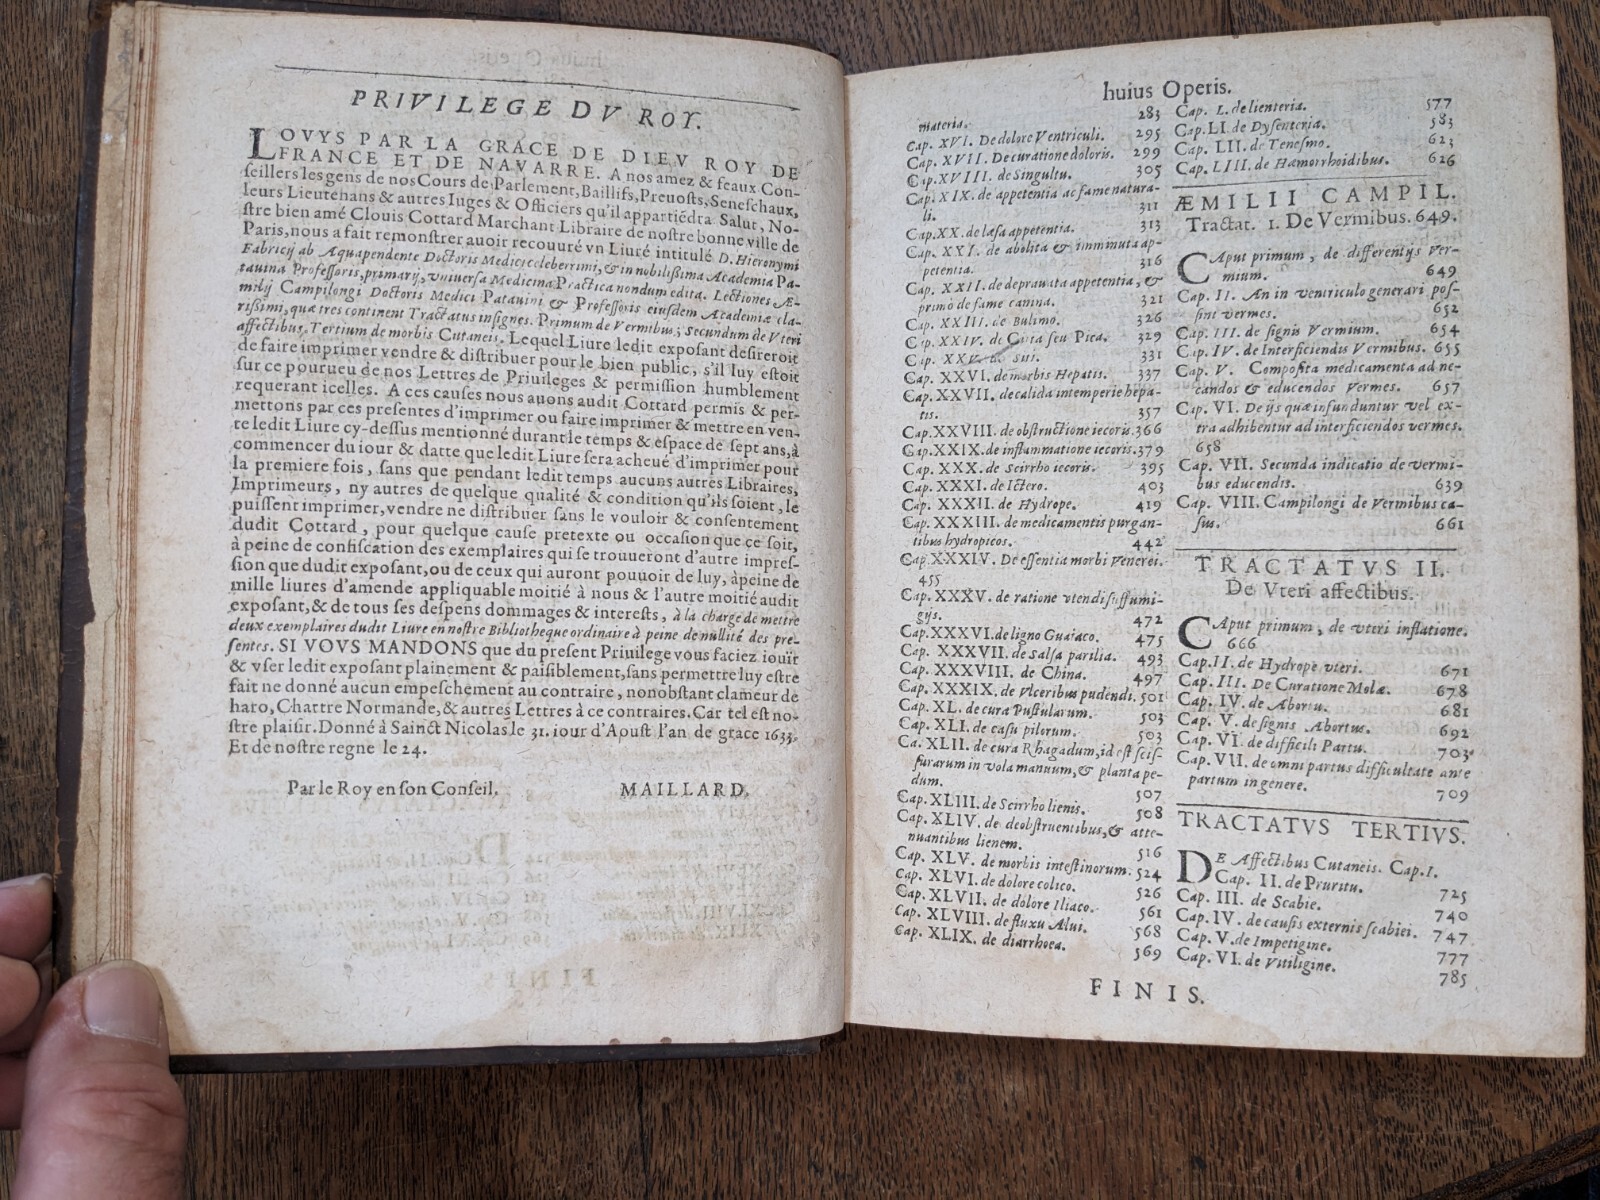 PRIVILEGE DV ROY.
LOVYS PAR LA GRACE DE DIEV ROY DE
FRANCE ET DE NAVARRE. A nos amez & feaux Con-
ſeillers les gens de nos Cours de Parlement, Baillifs, Preuoſts, Seneſchaux,
leurs Lieutenans & autres Iuges & Officiers qu'il appartiẽdra Salut, No-
ſtre bien amé Clouis Cottard Marchant Libraire de noſtre bonne ville de
Paris, nous a fait remonſtrer auoir recouuré vn Liuré intitulé D. Hieronymi
Fabricij ab Aquapendente Doctoris Medici celeberrimi, & in nobiliſſima Academia Pa-
tauina Profeſſoris, primarij, vniuerſa Medicina Practica nondum edita. Lectiones Æ-
milij Campilongi Doctoris Medici Patauini & Profeſſoris eiuſdem Academiæ cla-
riſſimi, quæ tres continent Tractatus inſignes. Primum de Vermibus; Secundum de Vteri
affectibus, Tertium de morbis Cutaneis. Lequel Liure ledit expoſant deſireroit
de faire imprimer vendre & diſtribuer pour le bien public, s'il luy eſtoit
ſur ce pourueu de nos Lettres de Priuileges & permiſſion humblement
requerant icelles. A ces cauſes nous auons audit Cottard permis & per-
mettons par ces preſentes d'imprimer ou faire imprimer & mettre en ven-
te ledit Liure cy-deſſus mentionné durant le temps & eſpace de ſept ans, à
commencer du iour & datte que ledit Liure ſera acheué d'imprimer pour
la premiere fois, ſans que pendant ledit temps aucuns autres Libraires,
Imprimeurs, ny autres de quelque qualité & condition qu'ils ſoient, le
puiſſent imprimer, vendre ne diſtribuer ſans le vouloir & conſentement
dudit Cottard, pour quelque cauſe pretexte ou occaſion que ce ſoit,
à peine de confiſcation des exemplaires qui ſe trouueront d'autre impreſ-
ſion que dudit expoſant, ou de ceux qui auront pouuoir de luy, à peine de
mille liures d'amende appliquable moitié à nous & l'autre moitié audit
expoſant, & de tous ſes deſpens dommages & intereſts, à la charge de mettre
deux exemplaires dudit Liure en noſtre Bibliotheque ordinaire à peine de nullité des pre-
ſentes. SI VOVS MANDONS que du preſent Priuilege vous faciez iouïr
& vſer ledit expoſant plainement & paiſiblement, ſans permettre luy eſtre
fait ne donné aucun empeſchement au contraire, nonobſtant clameur de
haro, Chattre Normande, & autres Lettres à ce contraires. Car tel eſt no-
ſtre plaiſir. Donné à Sainct Nicolas le 31. iour d'Aouſt l'an de grace 1633.
Et de noſtre regne le 24.
Par le Roy en ſon Conſeil, MAILLARD.
huius Operis.
materia. 283
Cap. XVI. De dolore Ventriculi. 295
Cap. XVII. De curatione doloris. 299
Cap. XVIII. de Singultu. 305
Cap. XIX. de appetentia ac fame natura-
li. 311
Cap. XX. de læſa appetentia. 313
Cap. XXI. de abolita & imminuta ap-
petentia. 316
Cap. XXII. de deprauata appetentia, &
primò de fame canina. 321
Cap. XXIII. de Bulimo. 326
Cap. XXIV. de Citta ſeu Pica. 329
Cap. XXV. de Siti. 331
Cap. XXVI. de morbis Hepatis. 337
Cap. XXVII. de calida intemperie hepa-
tis. 357
Cap. XXVIII. de obſtructione iecoris. 366
Cap. XXIX. de inflammatione iecoris. 379
Cap. XXX. de Scirrho iecoris. 395
Cap. XXXI. de Ictero. 403
Cap. XXXII. de Hydrope. 419
Cap. XXXIII. de medicamentis purgan-
tibus hydropicos. 442
Cap. XXXIV. De eſſentia morbi Venerei.
455
Cap. XXXV. de ratione vtendi ſuffumi-
gijs. 472
Cap. XXXVI. de ligno Guaiaco. 475
Cap. XXXVII. de Salſa parilia. 493
Cap. XXXVIII. de China. 497
Cap. XXXIX. de Vlceribus pudendi. 501
Cap. XL. de cura Puſtularum. 503
Cap. XLI. de caſu pilorum. 503
Ca. XLII. de cura Rhagadum, id eſt ſciſ-
ſurarum in vola manuum, & planta pe-
dum. 507
Cap. XLIII. de Scirrho lienis. 508
Cap. XLIV. de deobſtruentibus, & atte-
nuantibus lienem. 516
Cap. XLV. de morbis inteſtinorum. 524
Cap. XLVI. de dolore colico. 526
Cap. XLVII. de dolore Iliaco. 561
Cap. XLVIII. de fluxu Alui. 568
Cap. XLIX. de diarrhoea. 569
Cap. L. de lienteria. 577
Cap. LI. de Dyſenteria. 583
Cap. LII. de Teneſmo. 623
Cap. LIII. de Hæmorrhoidibus. 626
ÆMILII CAMPIL.
Tractat. 1. De Vermibus. 649.
CAput primum, de differentijs Ver-
mium. 649
Cap. II. An in ventriculo generari poſ-
ſint vermes. 652
Cap. III. de ſignis Vermium. 654
Cap. IV. de Interficiendis Vermibus. 655
Cap. V. Compoſita medicamenta ad ne-
candos & educendos Vermes. 657
Cap. VI. De ijs quæ infunduntur vel ex-
tra adhibentur ad interficiendos vermes.
658
Cap. VII. Secunda indicatio de vermi-
bus educendis. 639
Cap. VIII. Campilongi de Vermibus ca-
ſus. 661
TRACTATVS II.
De Vteri affectibus.
CAput primum, de vteri inflatione.
666
Cap. II. de Hydrope vteri. 671
Cap. III. De Curatione Molæ. 678
Cap. IV. de Abortu. 681
Cap. V. de ſignis Abortus. 692
Cap. VI. de difficili Partu. 703
Cap. VII. de omni partus difficultate ante
partum in genere. 709
TRACTATVS TERTIVS.
DE Affectibus Cutaneis. Cap. I.
Cap. II. de Pruritu. 725
Cap. III. de Scabie. 740
Cap. IV. de cauſis externis ſcabiei. 747
Cap. V. de Impetigine. 777
Cap. VI. de Vitiligine. 785
FINIS.